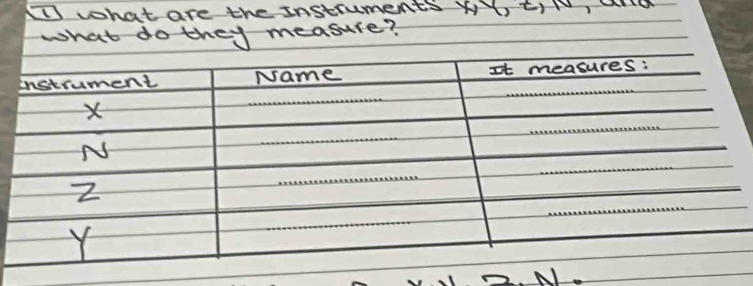 ① what are the Instruments X, Y, Z, N, and
what do they measure?
Instrument Name It measures:
X ........................ ........................
N ........................ ........................
Z ........................ ........................
Y ........................ ........................
Z, N.